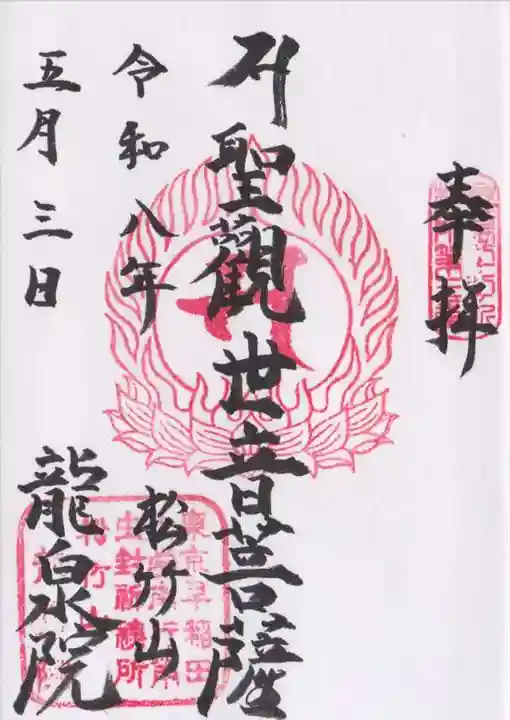 奉拝
聖觀世音菩薩
令和八年
五月三日
松竹山
龍泉院
東京早稲田
虫封祈祷所